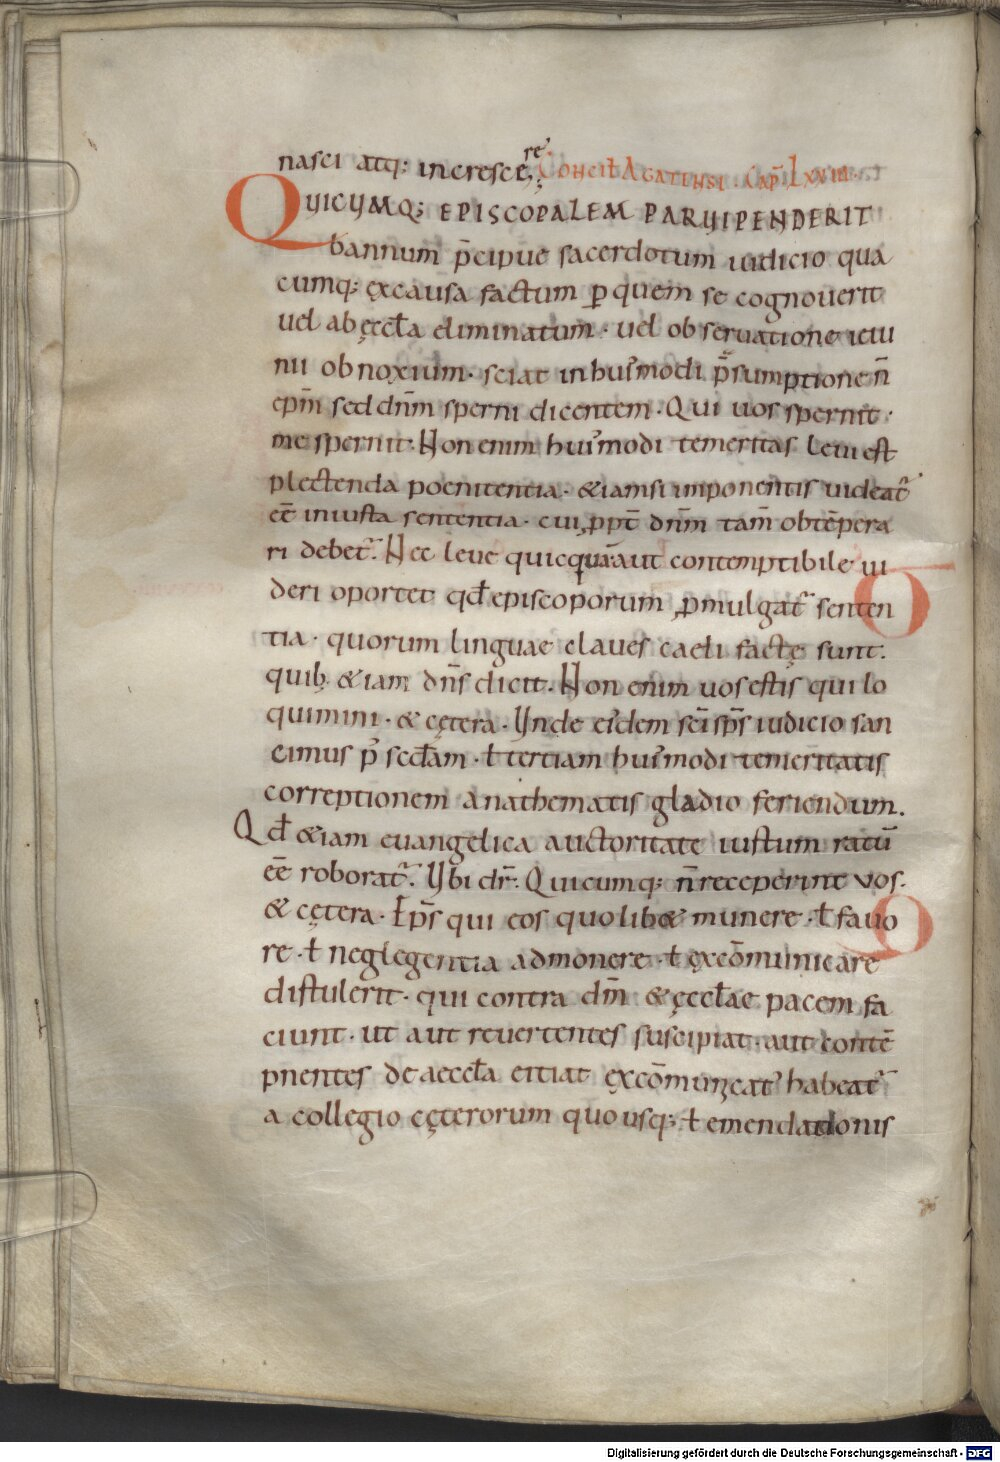 nasci atq: increscere; Concil Agatensi. Cap LXVIII.
QUICUMQ; EPISCOPALEM PARUIPENDERIT
bannum p̄cipue sacerdotum iudicio qua
cumq; ęxcausa factum ꝑ quem se cognouerit
uel ab ęccła eliminatum · uel obseruatione ieiu
nii obnoxium · sciat in hui᾽modi p̄sumptione n̄
epm̄ sed dnm̄ sperni dicentem · Qui uos spernit ·
me spernit · Non enim hui᾽modi temeritas leui est
plectenda poenitentia · &iamsi imponentis uideat᷑
eē iniusta sententia · cui ꝓpt̄ dnm̄ tam̄ obtēpera
ri debet᷑. Nec leue quicquā aut contemptibile ui
deri oportet qđ episcoporum ꝓmulgat᷑ senten
tia · quorum linguae claues caeli factę sunt.
quib; &iam dn̄s dicit. Non enim uos estis qui lo
quimini · & cętera · Unde ei᾽dem sc̄i sp̄s iudicio san
cimus p᾽ secđam · ł tertiam hui᾽modi temeritatis
correptionem anathematis gladio feriendum.
Qđ &iam euangelica auctoritate iustum ratū
eē roborat᷑. Ubi dr̄. Quicumq; n̄ receperint vos.
& cętera · Ep̄s qui eos quolib& munere · ł fauo
re · ł neglegentia admonere · ł ęxcōmunicare
distulerit · qui contra dm̄ & ęccłae pacem fa
ciunt · ut aut reuertentes suscipiat · aut contē
pnentes de aeccła eitiat ęxcōmunicat᾽ habeat᷑
a collegio cęterorum quousq; ł emendationis
Digitalisierung gefördert durch die Deutsche Forschungsgemeinschaft - DFG